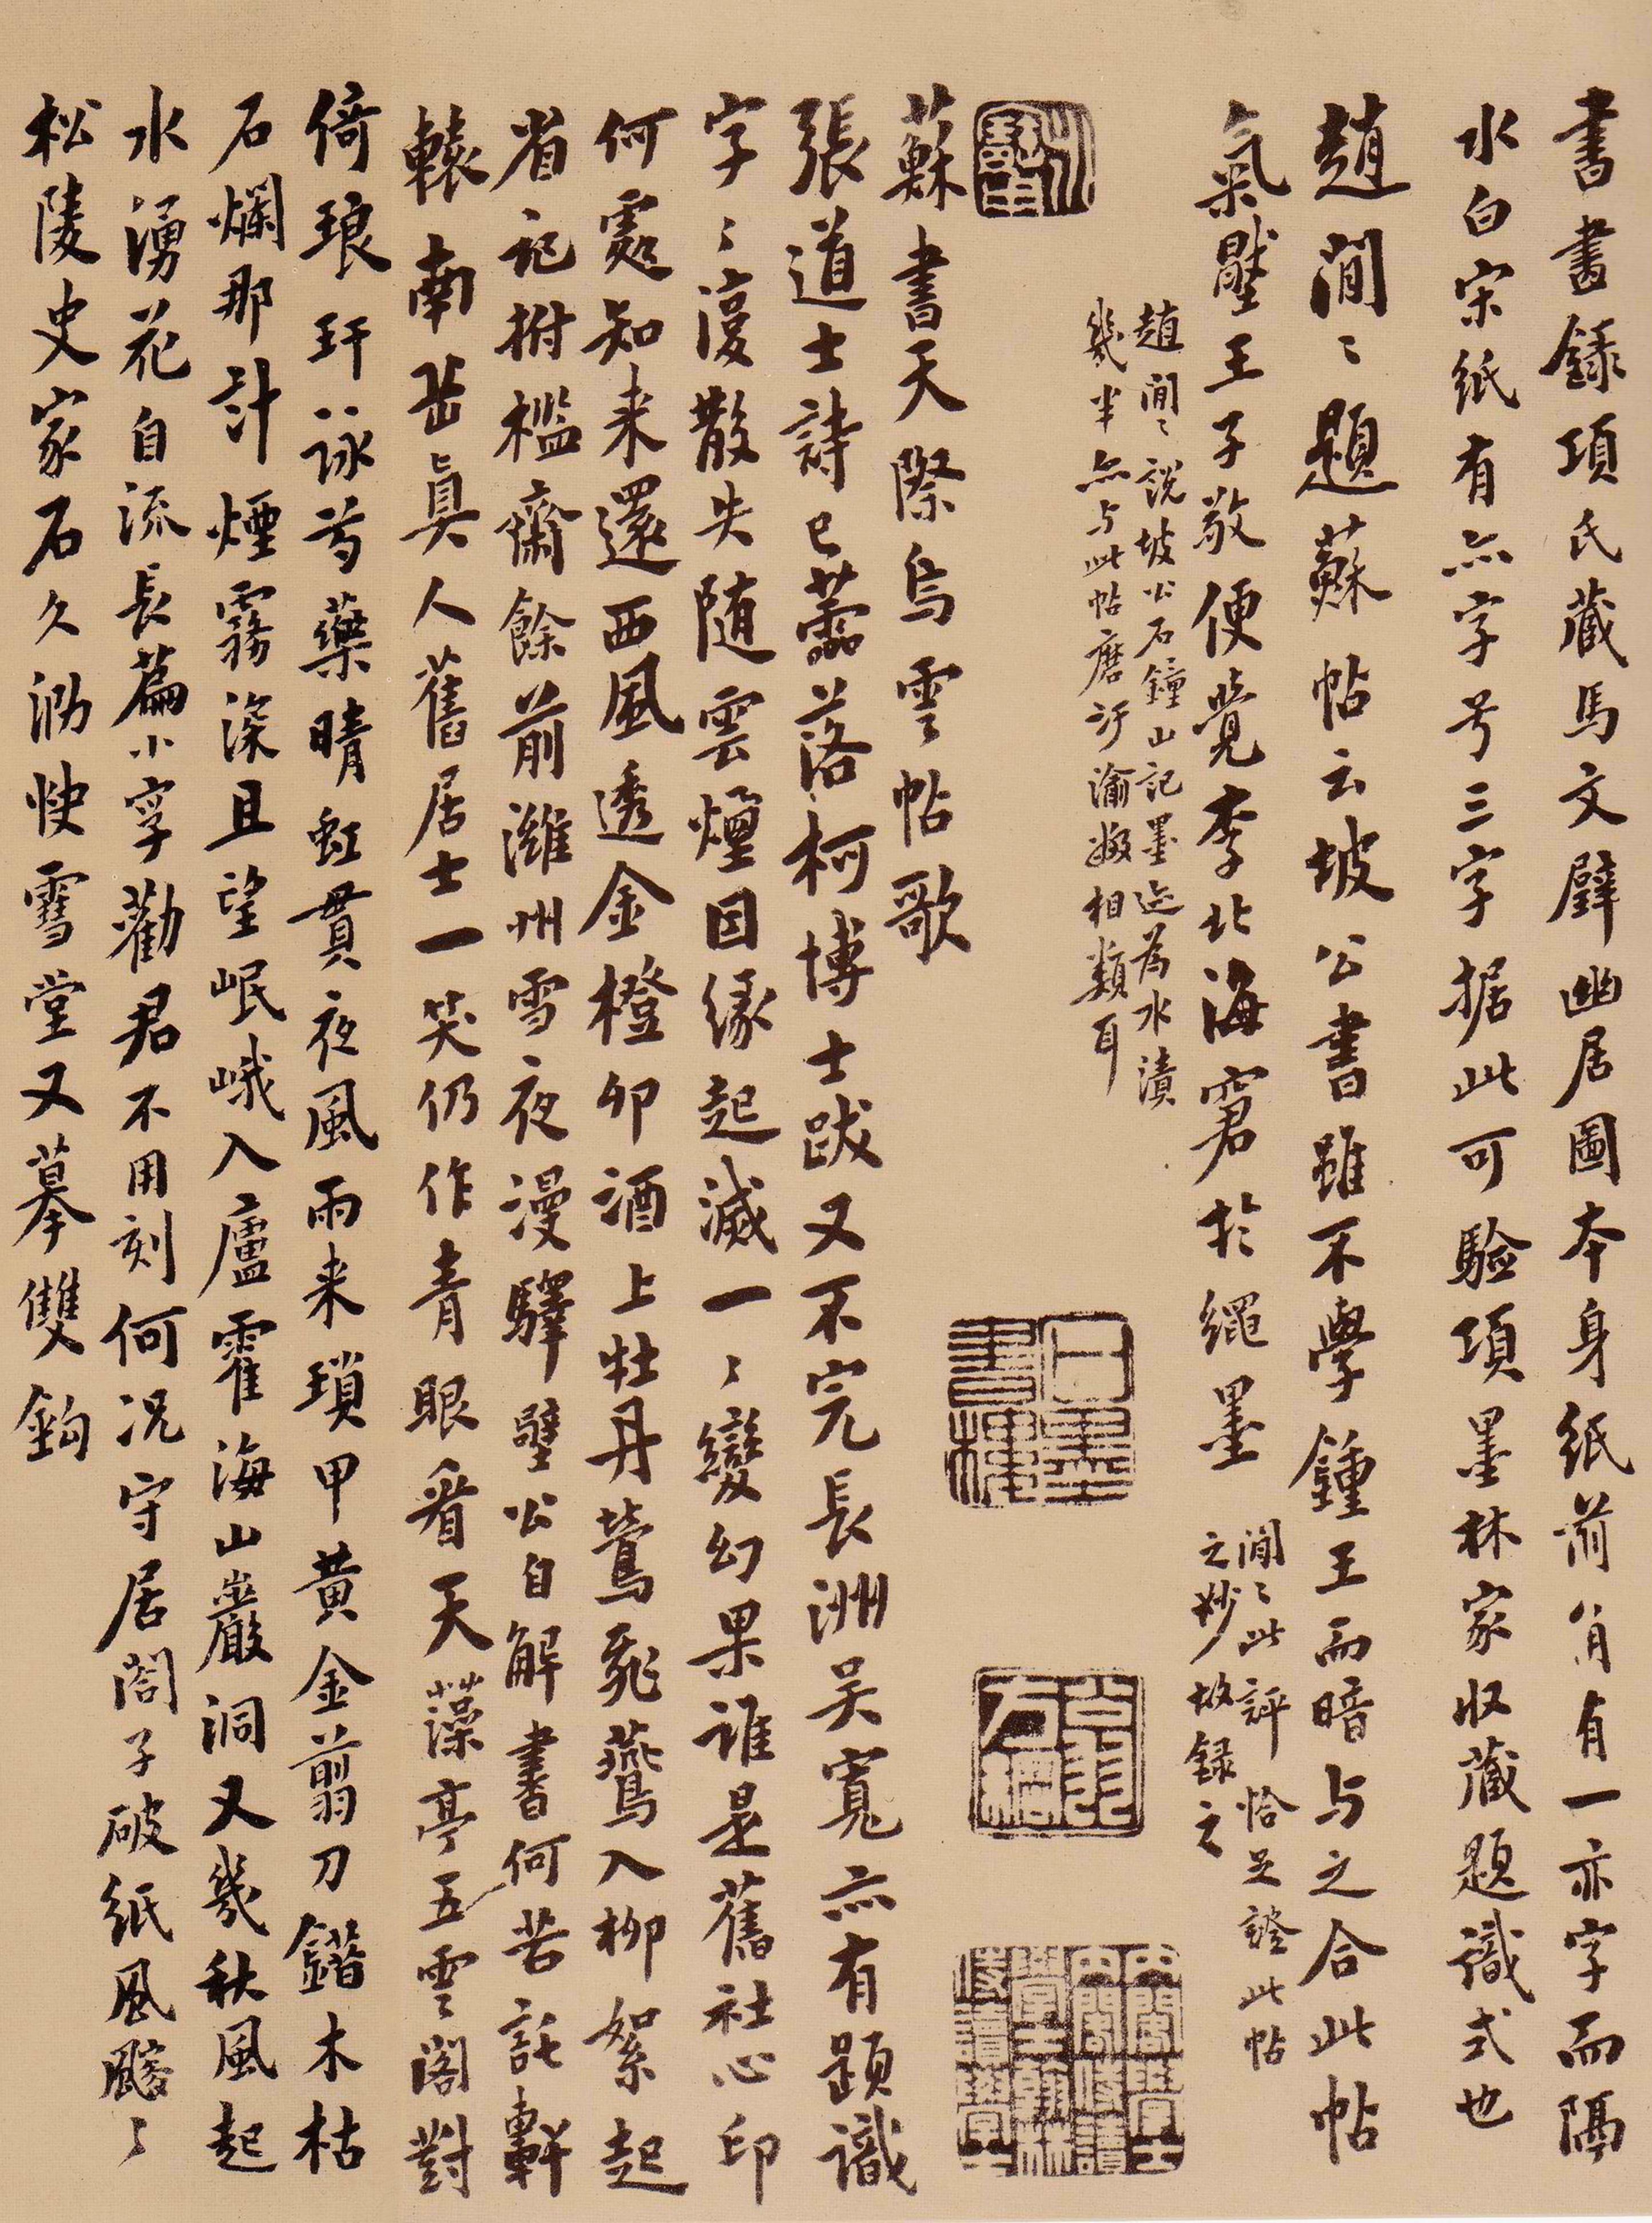 書畫錄項氏藏馬文璧幽居圖本身紙前角有一亦字而隔
水白宋紙有亦字号三字据此可驗項墨林家収藏題識式也
趙閒〻題蘇帖云坡公書雖不學鍾王而暗与之合此帖
氣壓王子敬便覺李北海窘於繩墨
閒〻此評恰足證此帖
之妙故録之
趙閒〻說坡公石鐘山記墨迹為水漬
幾半亦与此帖
相類耳
蘇書天際烏雲帖歌
張道士詩已蕭落柯博士跋又不完長洲吴寬亦有題識
字〻復散失随雲煙因緣起滅一〻變幻果誰是舊社心印
何處知来還西風透金橙卯酒上牡丹鶯飛燕入柳絮起
省記拊檻齋餘前濰州雪夜漫驛壁公自解書何苦託軒
轅南岳真人舊居士一笑仍作青眼看天藻亭五雲閣對
倚琅玕詠芍藥晴虹貫夜風雨来瑣甲黄金翦刀鐕木枯
石爛那計煙霧深且望岷峨入廬霍海山巖洞又幾秋風起
水湧花自流長篇小字勸君不用刻何况守居閤子破紙風颼〻
松陵史家石久泐快雪堂又摹雙鉤